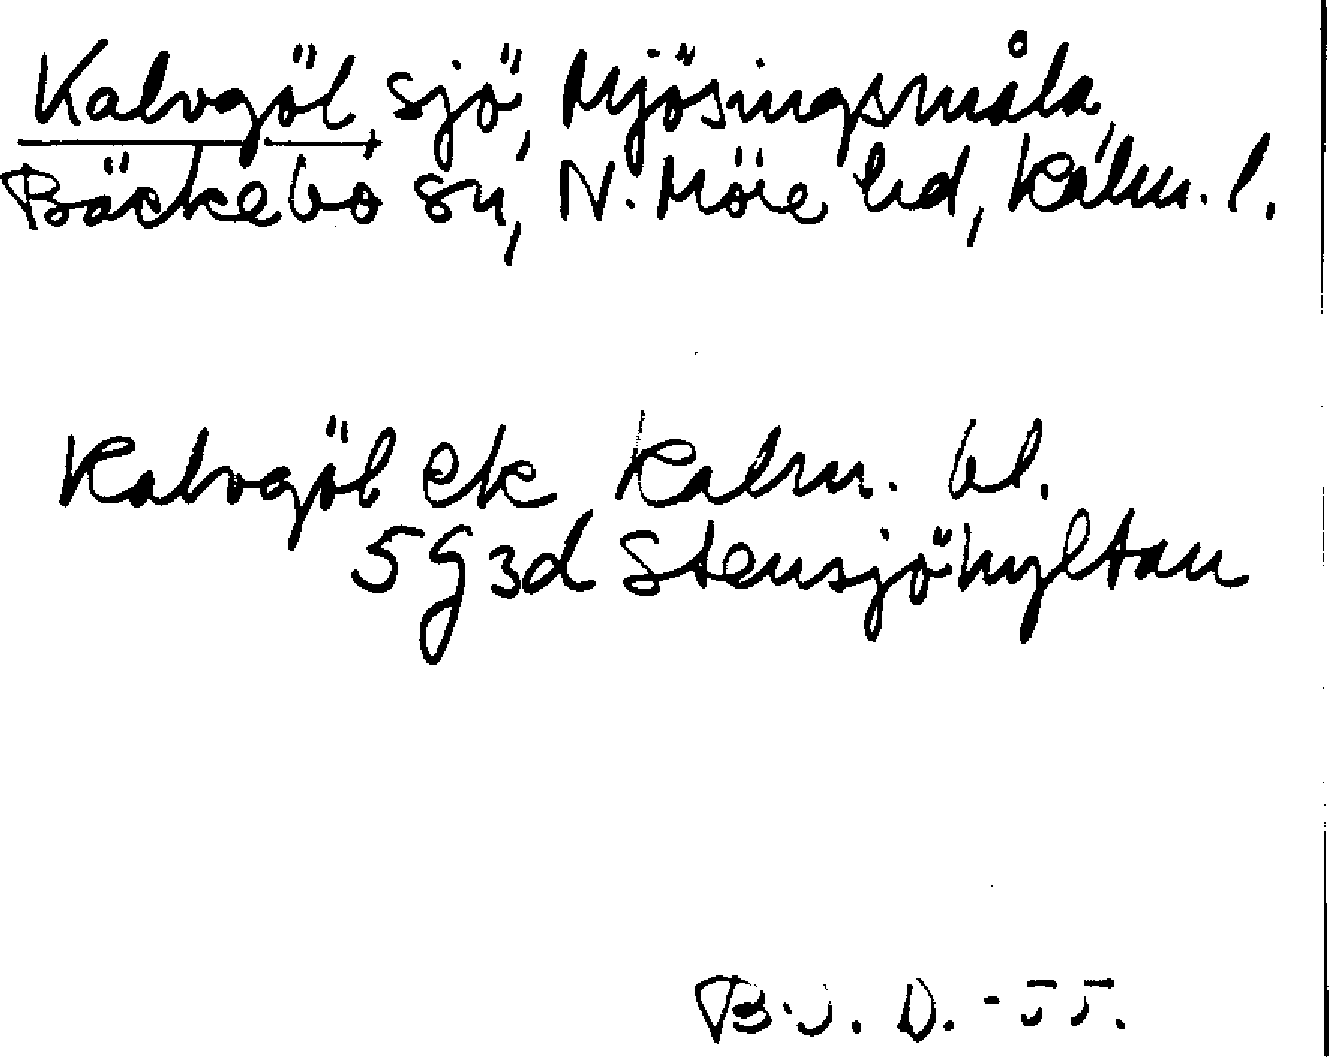 Kalvgöl, sjö, Mjösingsmåla,
Bäckebo sn, N. Möre hd, Kalm. l.
Kalvgöl ek Kalm. bl.
5 G 3d Stensjöhyltan
B.J. D. -55.